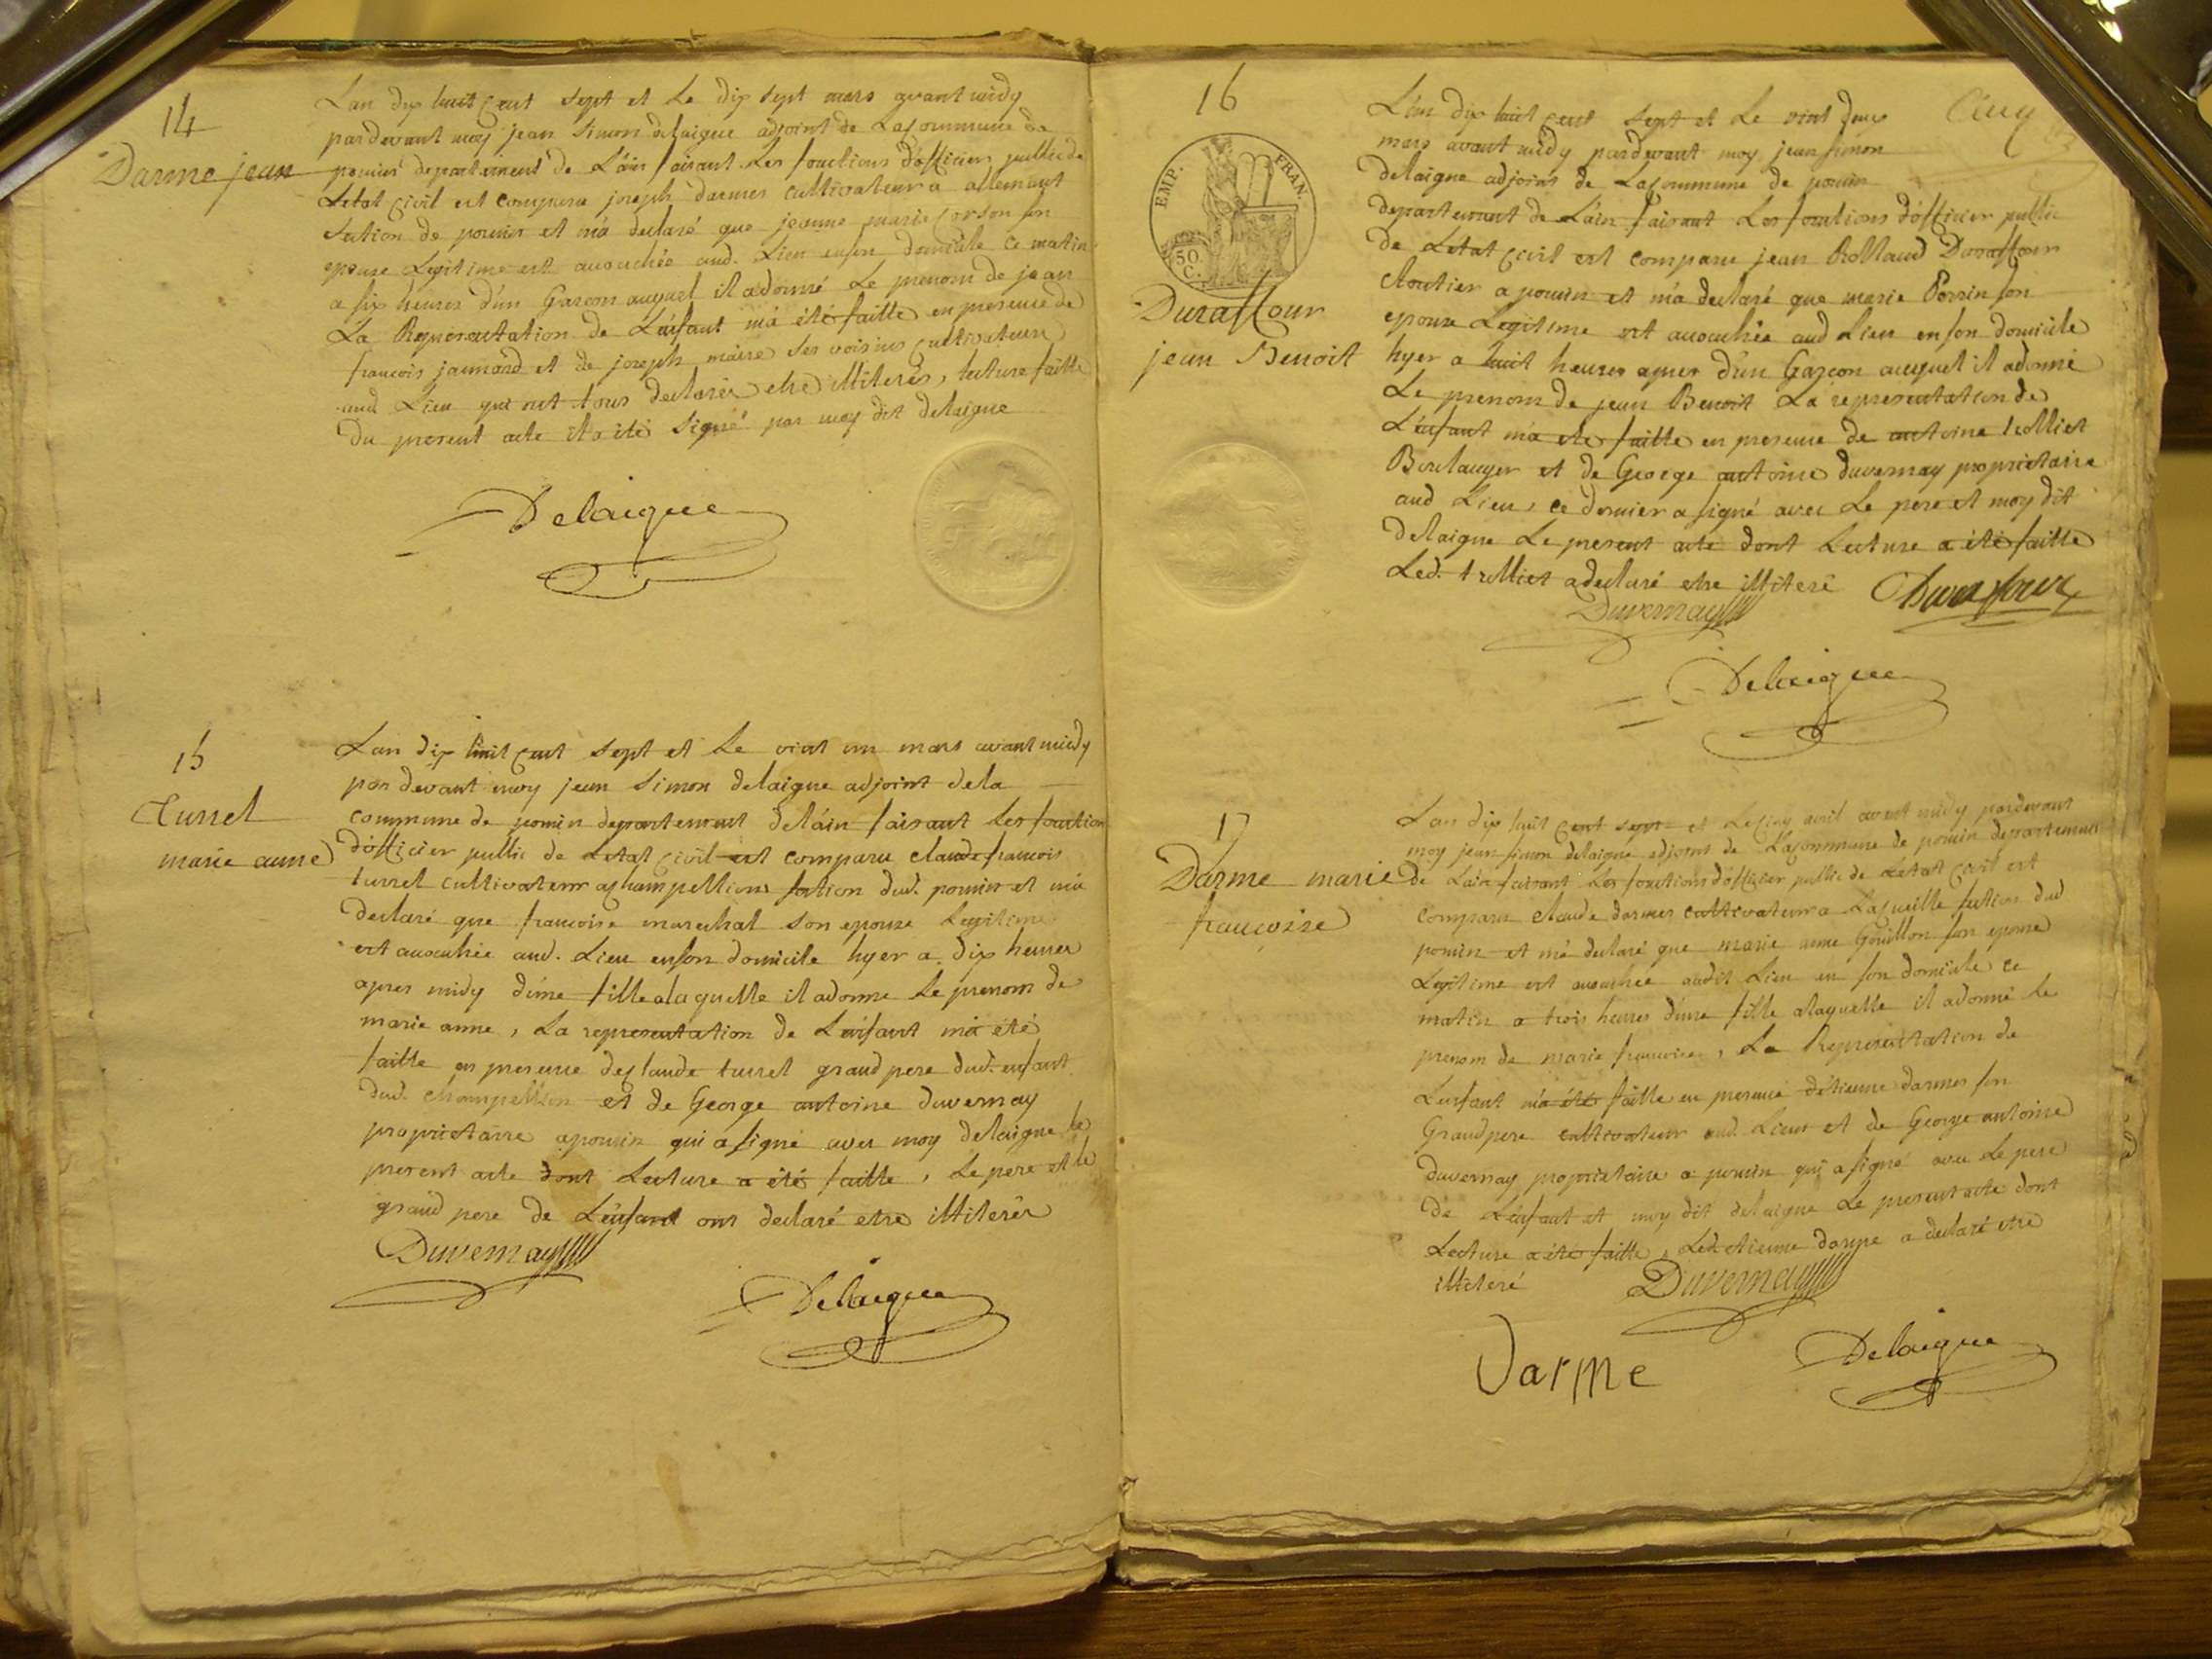 14
Darme jean
Lan dix huit cent sept et Le dix sept mars avant midy
pardevant moy jean Simon delaigue adjoint de Lacommune de
pouin departement de L'áin faisant Les fonctions d'officier public de
Letat civil est comparu joseph darmes cultivateur a allemant
section de pouin et m'a declaré que jeanne marie son
epouse Legitime est accouchée aud. Lieu enson domicile ce matin
a six heures d'un Garcon auquel il adonné Le prenom de jean
La Representation de L'enfant m'a été faitte en presence de
francois jannard et de joseph maire ses voisins cultivateurs
aud Lieu qui ont tous declarés etre illiterés, lecture faitte
du present acte il a été signé par moy dit delaigue
Delaigue
15
Turrel
marie anne
Lan dix huit cent sept et Le vint un mars avant midy
par devant moy jean Simon delaigue adjoint dela
commune de pouin departement deláin faisant Les fonction
d'officier public de Letat civil est comparu claude francois
turrel cultivateur achampellion section dud. pouin et m'a
declaré que francoise marechal son epouse Legitime
est accouchée aud. Lieu enson domicile hyer a dix heures
apres midy d'une fille alaquelle il adonné Le prenom de
marie anne, La representation de L'enfant m'a été
faitte en presence declaude turrel grand pere dud. enfant
dud. champellion et de George antoine duvernay
proprietaire apouin qui a signé avec moy delaigue Le
present acte dont Lecture a été faitte, Le pere et le
grand pere de L'enfant ont declaré etre illiterés
Duvernay
Delaigue
16
EMP. FRAN.
50 C.
Duraffour
jean Benoit
Cinq
L'an dix huit cent sept et Le vint deux
mars avant midy pardevant moy jean simon
delaigue adjoint de Lacommune de pouin
departement de L'áin faisant Les fonctions d'officier public
de Letat civil est comparu jean Rolland Duraffour
Cloutier a pouin et m'a declaré que marie Perrin son
epouse Legitime est accouchée aud Lieu enson domicile
hyer a huit heures apres d'un Garçon auquel il adonné
Le prenom de jean Benoit La representation de
L'enfant m'a eté faitte en presence de antoine trolliet
Boulanger et de George antoine duvernay proprietaire
aud Lieu, ce dernier a signé avec Le pere et moy dit
delaigue Le present acte dont Lecture a été faitte
Led. trolliet a declaré etre illiteré
Duvernay
Duraffour
Delaigue
17
Darme marie
françoise
Lan dix huit cent sept et Le cinq avril avant midy pardevant
moy jean simon delaigue adjoint de Lacommune de pouin departement
de Láin faisant Les fonctions d'officier public de Létat civil est
comparu claude darmes cultivateur a section dud
pouin et m'a declaré que marie anne Gouillon son epouse
Legitime est accouchée audit Lieu en son domicile ce
matin a trois heures d'une fille alaquelle il adonné Le
prenom de marie francoise, La Representation de
L'enfant m'a été faitte en presence d'étienne darmes son
Grandpere cultivateur aud. Lieu et de George antoine
duvernay proprietaire a pouin qui a signé avec Le pere
de L'enfant et moy dit delaigue Le present acte dont
Lecture a été faitte, Led. etienne darme a declaré etre
illiteré
Duvernay
Darme
Delaigue